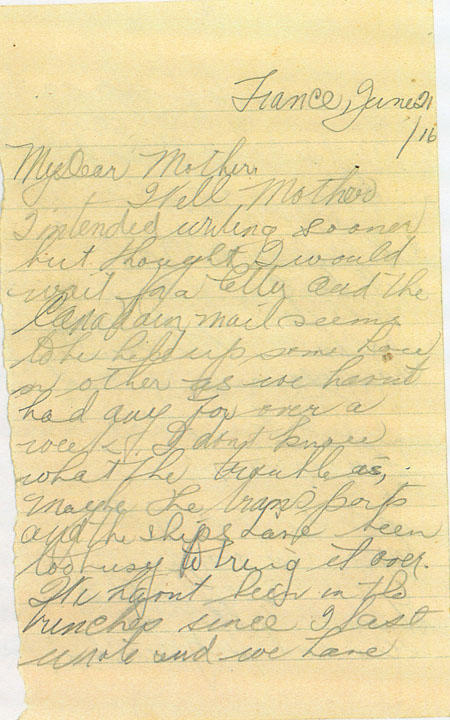 France, June 21
/16
My Dear Mother.
Well Mother
I intended writing sooner
but thought I would
wait for a letter and the
Canadain mail seems
to be held up some how
or other as we havnt
had any for over a
week. I dont know
what the trouble is,
maybe the transports
and the ships have been
too busy to bring it over.
We havnt been in the
trenches since I last
wrote and we have